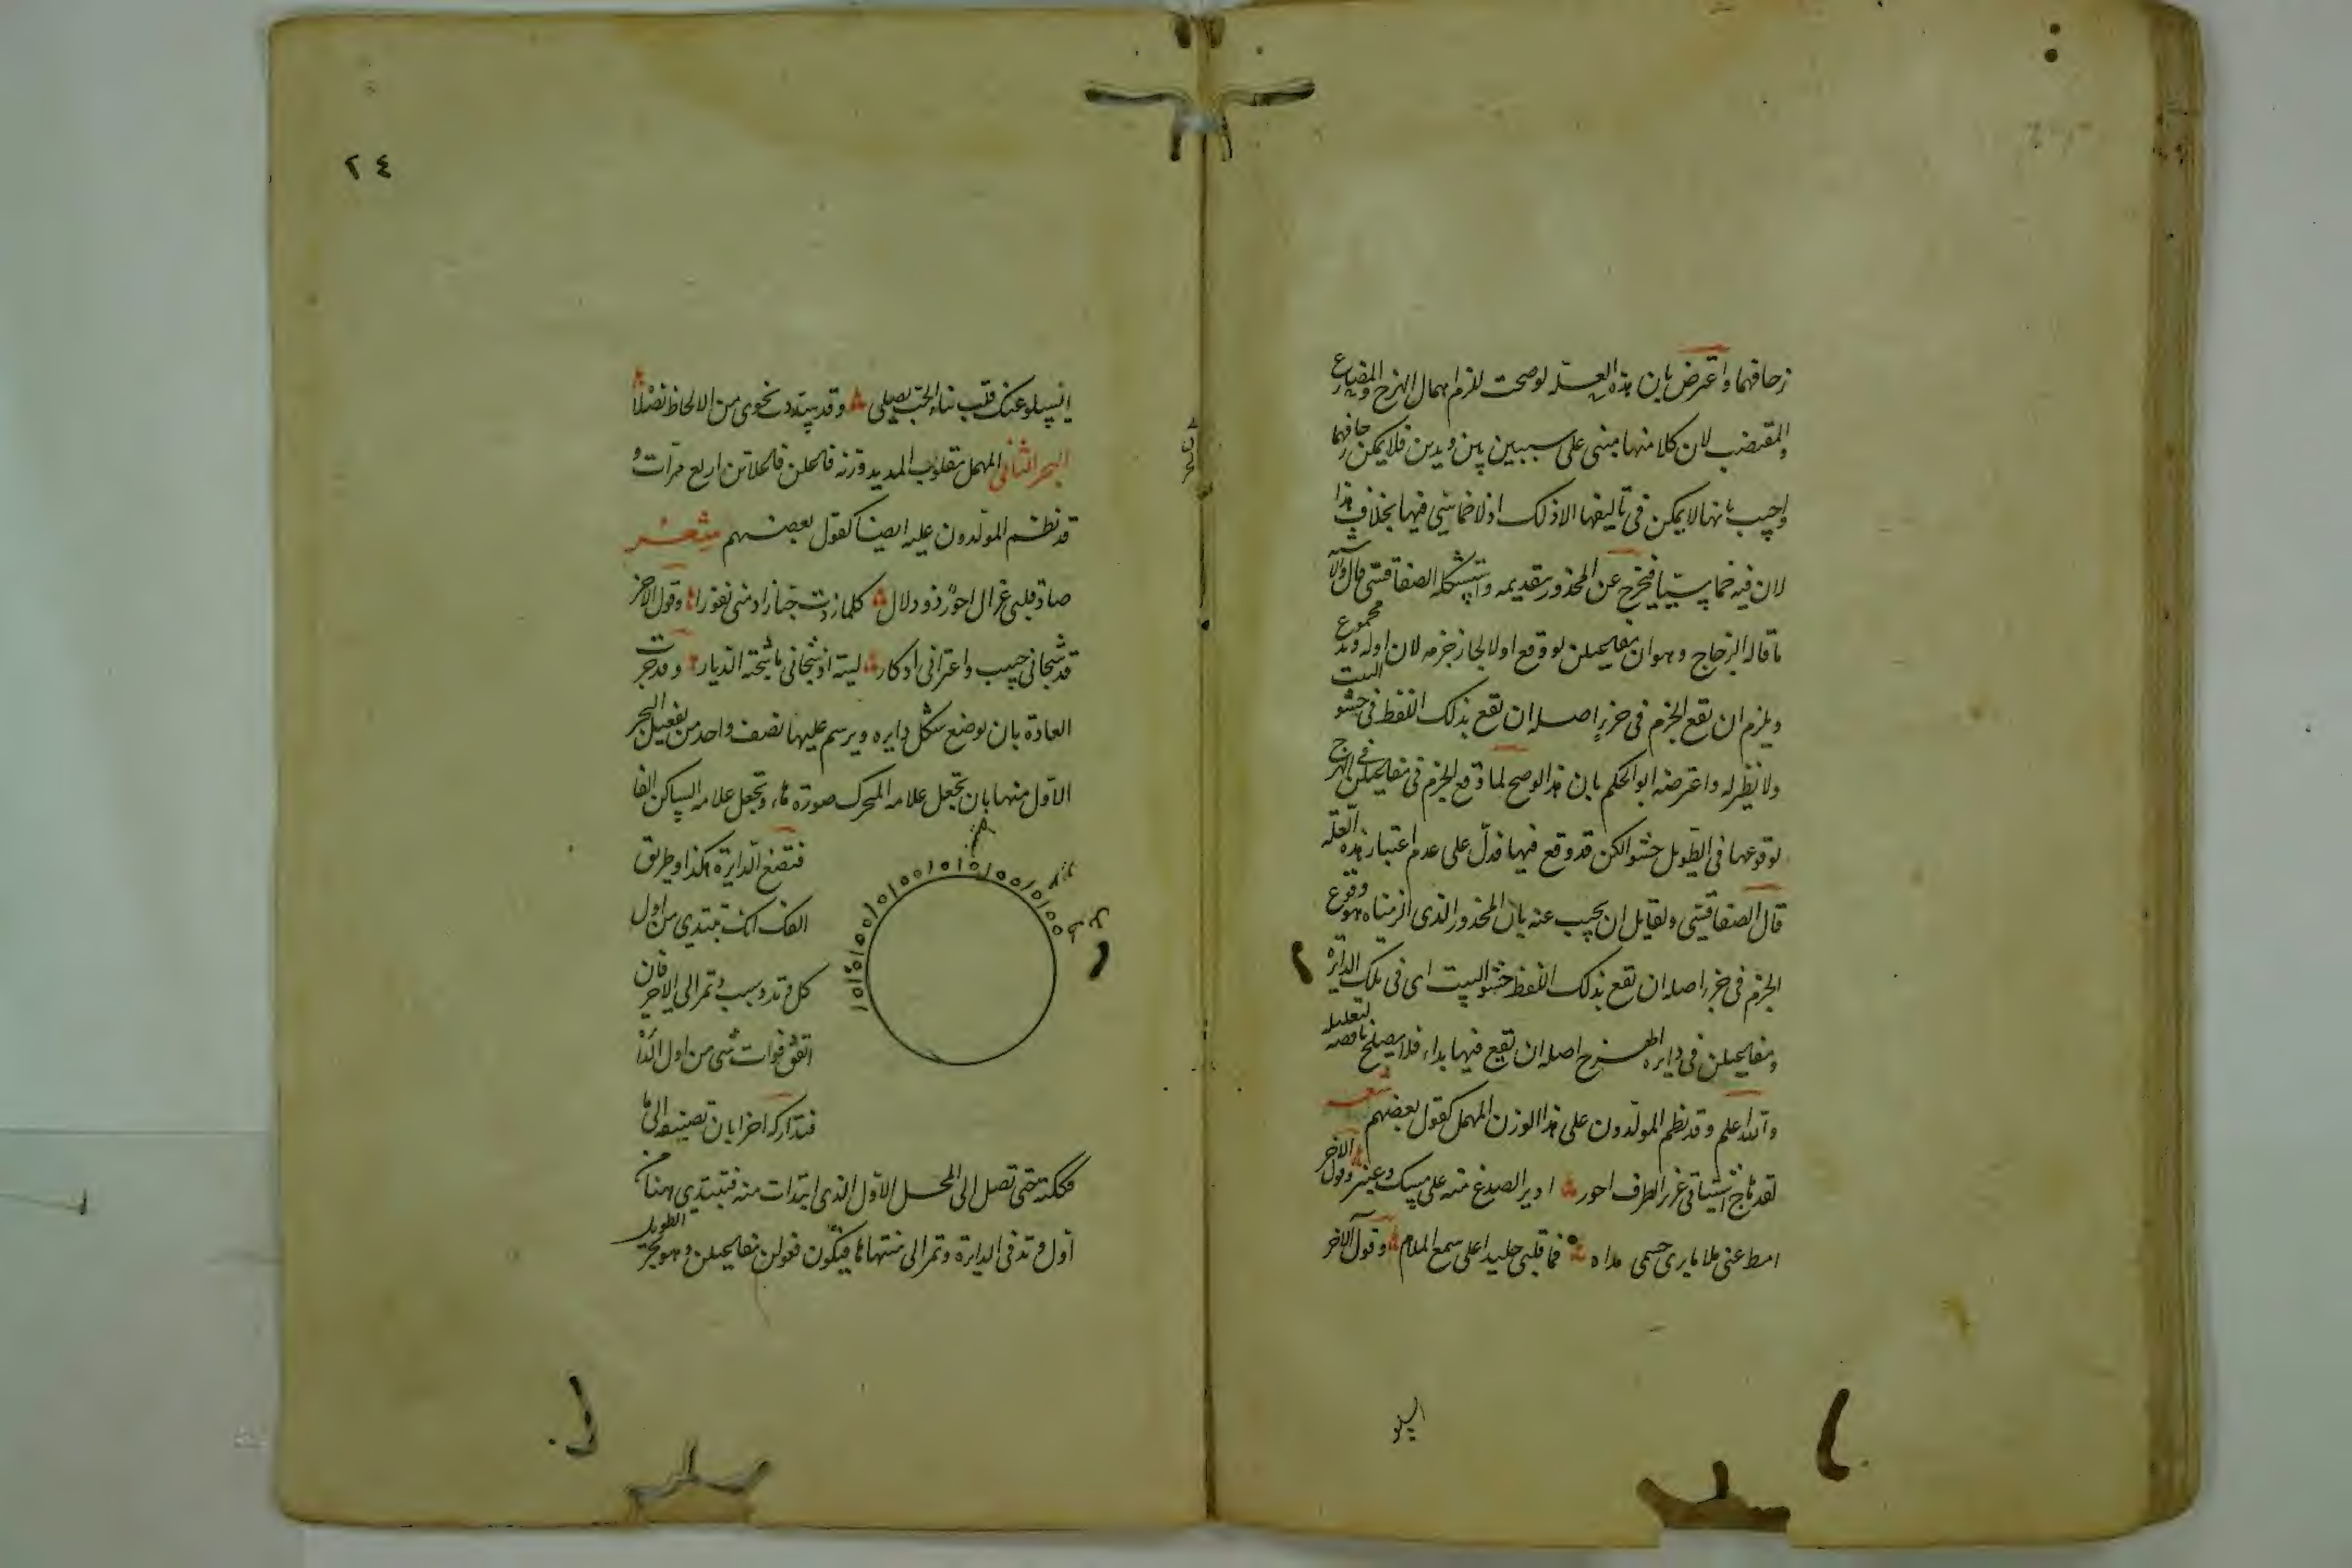 زحافهما واعترض بان هذه العلة لو صحت لزم اهمال الهزج والمضارع
والمقتضب لان كلا منها مبنى على سببين بين وتدين فلا يمكن زحافهما
واجيب بانها لا يمكن فى تاليفها الا ذلك اذ لا خماسى فيها بخلاف هذا
لان فيه خماسيا فيخرج عن المحذور بتقديمه واستشكله الصفاقسى قال والا
ما قاله الزجاج وهو ان مفاعيلن لو وقع اولا لجاز خرمه لان اوله وتد مجموع
ويلزم ان تقع الخرم فى جزء اصله ان تقع بذلك اللفظ فى حشو البيت
ولا نظير له واعترضه ابو الحكم بان هذا لو صح لما وقع الخرم فى مفاعيلن فى الهزج
لوقوعها فى الطويل حشوا لكن قد وقع فيها فدل على عدم اعتبار هذه العلة
قال الصفاقسى ولقايل ان يجيب عنه بان المحذور الذى الزمناه هو وقوع
الخرم فى جزء اصله ان تقع بذلك اللفظ حشو البيت اى فى تلك الدايرة
ومفاعيلن فى دايرة الهزج اصله ان تقع فيها بداء فلا يصلح ناقضه لتعليله
والله اعلم وقد نظم المولدون على هذا الوزن المهمل كقول بعضهم شعر
لقد هاج اشتياقى غرير الطرف احور ادير الصدغ منه على مسك وعنبر وقول الاخر
امط عنى ملاما يرى جسمى مداه فما قلبى جليدا على سمع الملام وقول الاخر
ايسلو
٢٤
ايسلو عنك قلب بناء الحب يصلى وقد سددت نحوى من الالحاظ نصلا
البحر الثانى المهمل مقلوب المديد وزنه فاعلن فاعلاتن اربع مرات و
قد نظم المولدون عليه ايضا كقول بعضهم شعر
صاد قلبى غزال احور ذو دلال كلما زدت حبا زاد منى نفورا وقول الاخر
قد شجانى حبيب واعترانى ادكار ليته اذ شجانى ما شجته الديار وقد جرت
العادة بان توضع شكل دايره ويرسم عليها نصف واحد من تفعيل البحر
الاول منها بان تجعل علامه المتحرك صورة هاء وتجعل علامه الساكن الفا
فتضع الدايرة هكذا وطريق
الفك انك تبتدي من اول
كل وتد وسبب وتمر الى الاخر فان
اتفق فوات شى من اول الدا
فتداركه اخرا بان تضيفه الى ما
فككته حتى تصل الى المحل الاول الذى ابتدات منه فتبتدى هنا من
اول وتد فى الدايرة وتمر الى منتهاها فيكون فعولن مفاعيلن وهو بحر الطويل